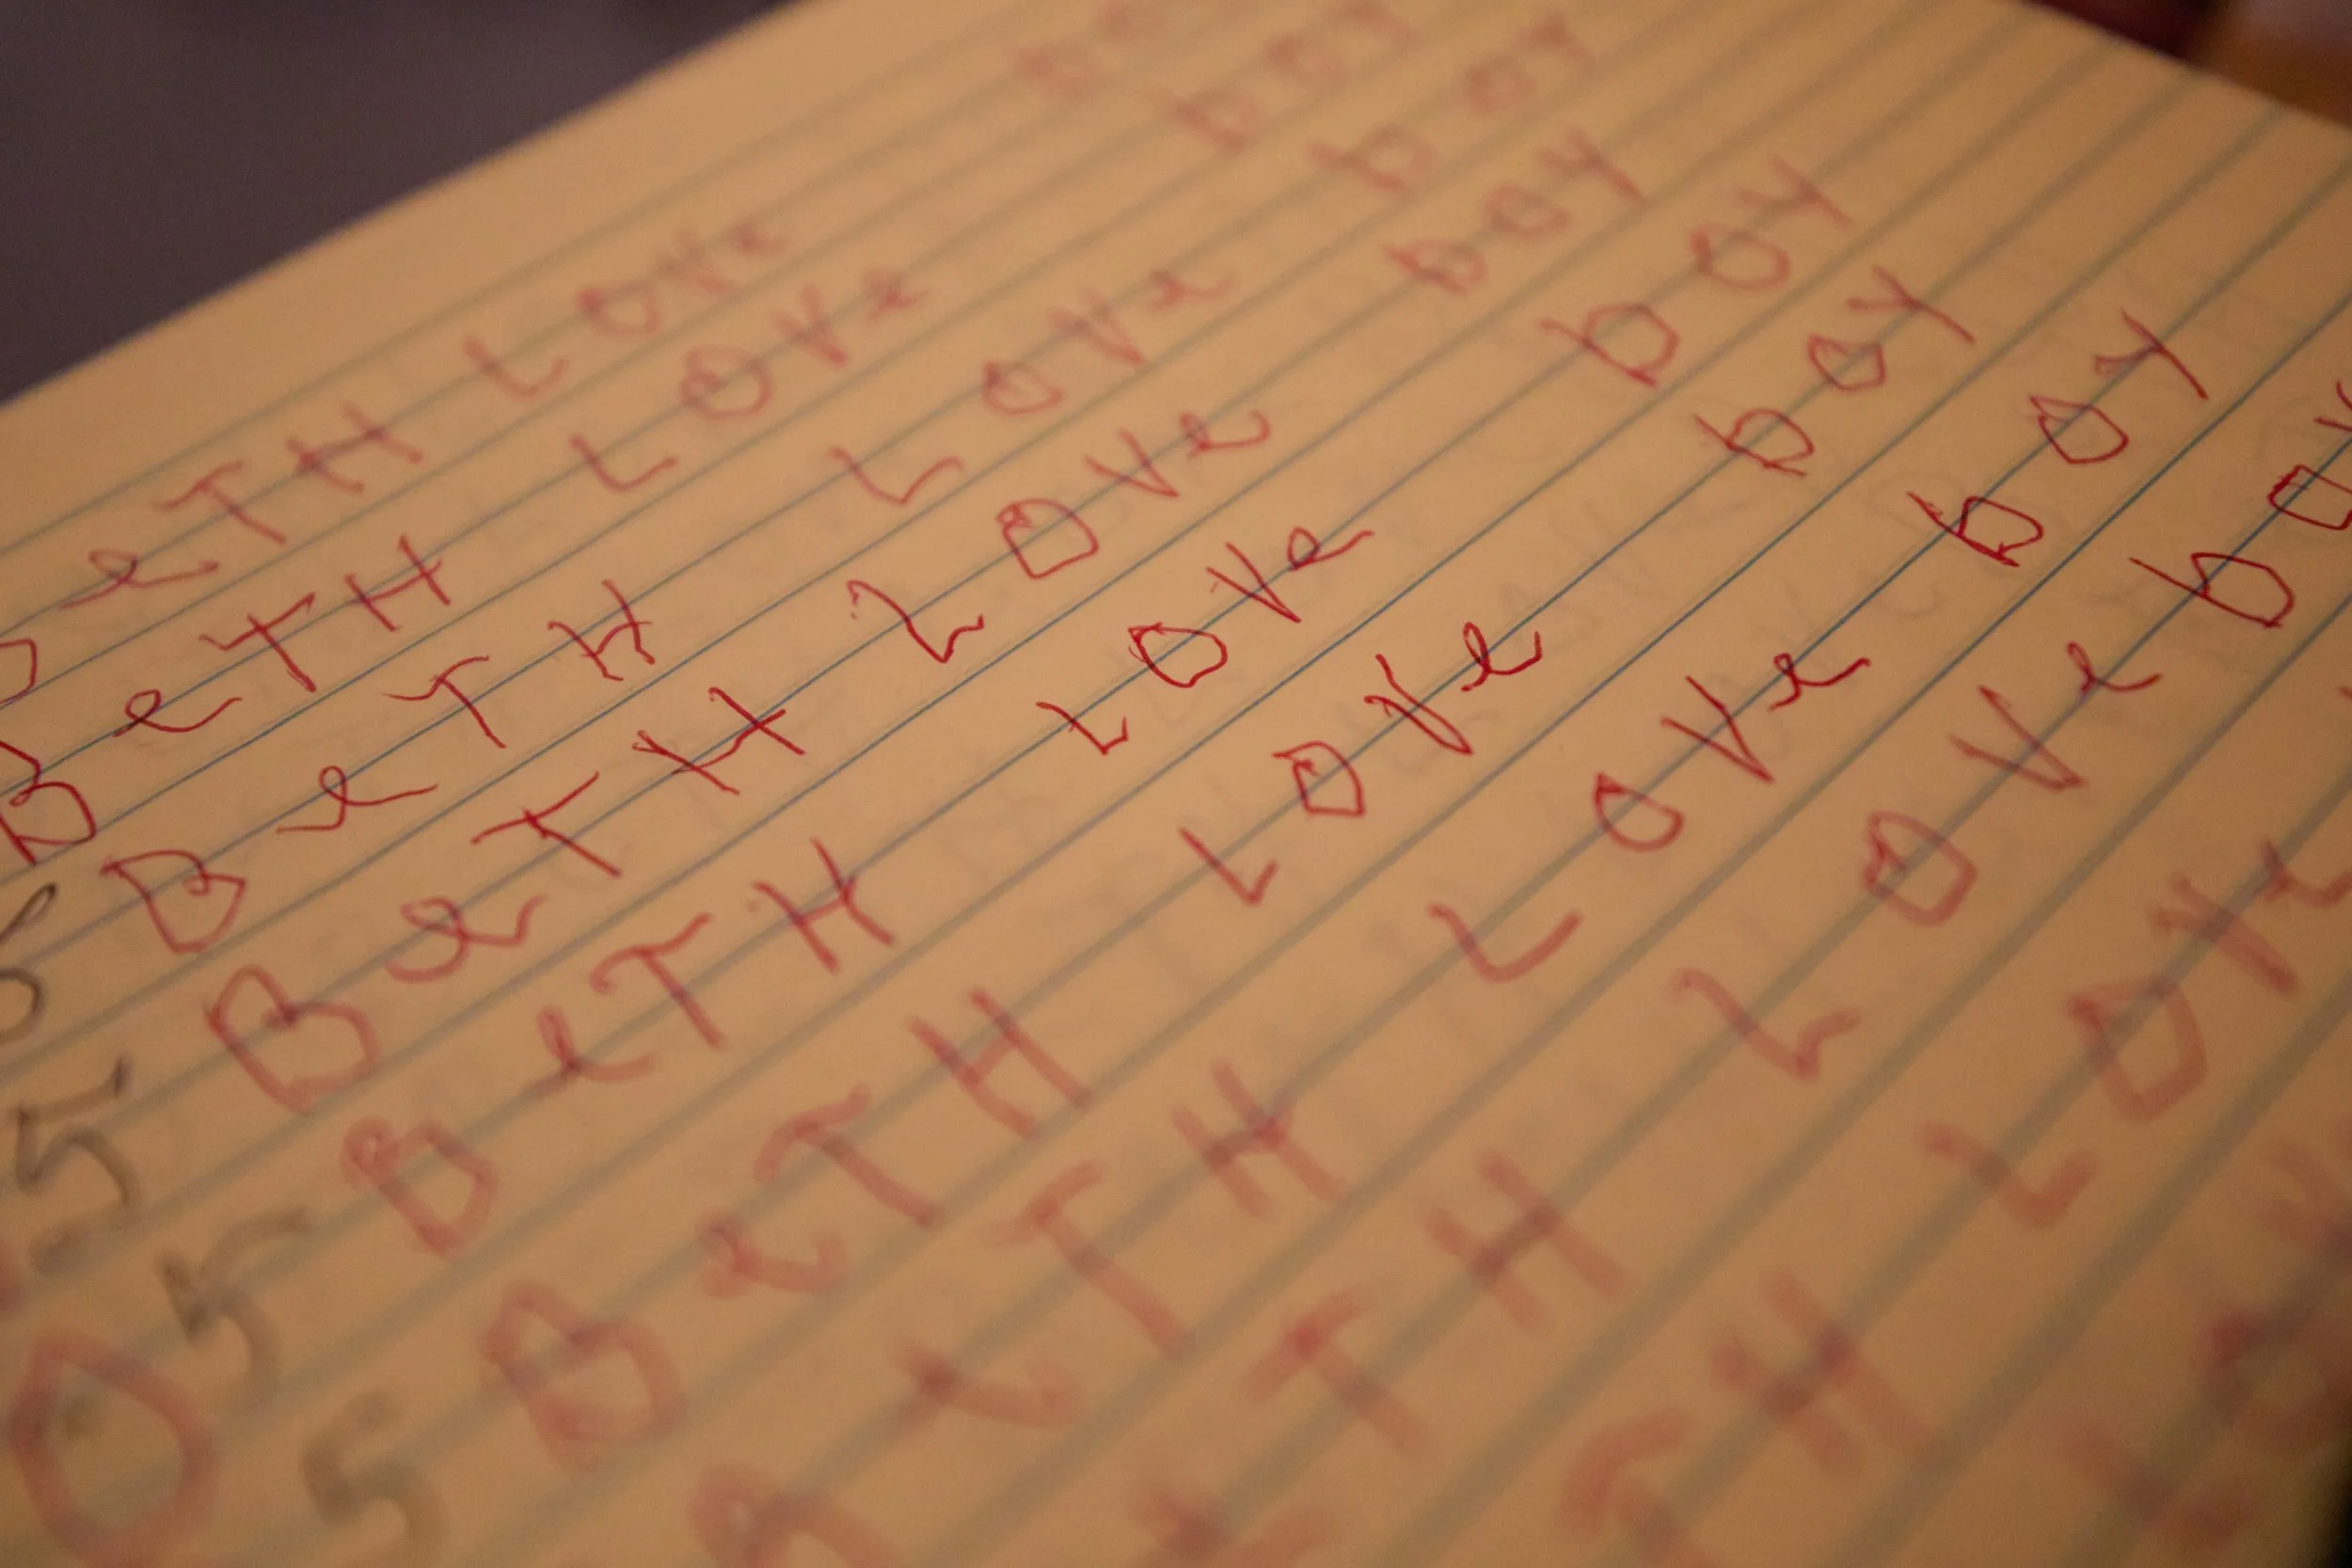 BeTH LOVe bo
BeTH LOVe boY
BeTH LOVe boY
5 BeTH LOVe boY
O 5 BeTH LOVe boY
5 BeTH LOVe boY
BeTH LOVe boY
eTH LOVe bo
TH LOVe